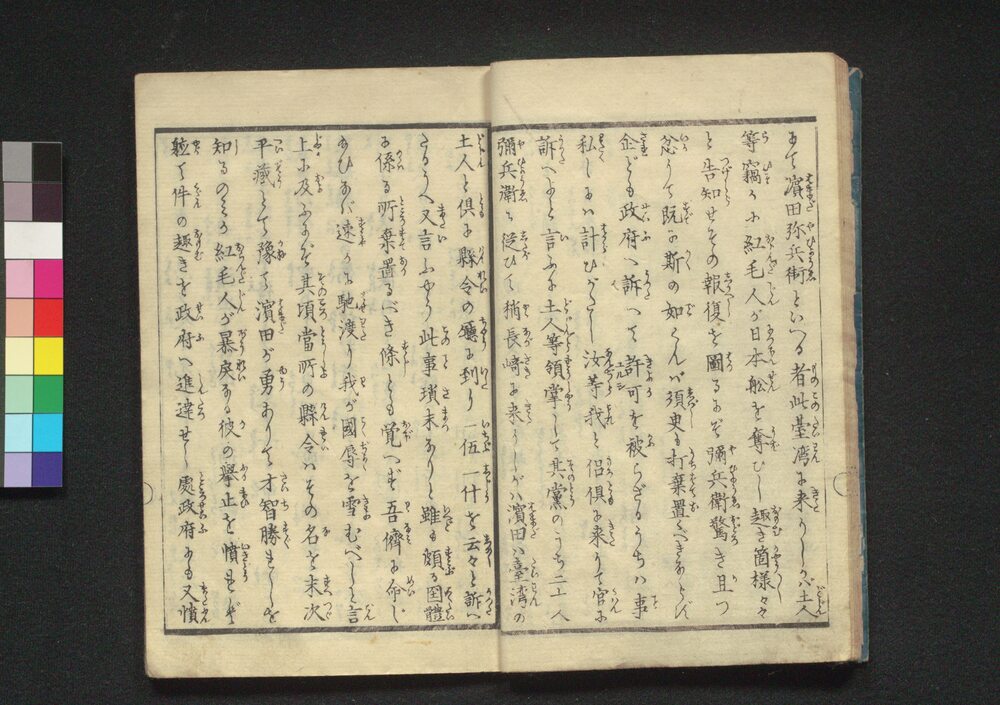 にて濱田弥兵衛といへる者此臺湾に来りしかバ土人
等竊かに紅毛人が日本舩を奪ひし趣き箇様々々
と告知せその報復を圖るにぞ彌兵衛驚き且つ
忿りて既に斯の如くんバ須臾も打棄置くべきにあらねど
企ども政府へ訴へて許可を被らざるうちハ事
私しにハ計ひがたし汝等我と侶倶に来りて官に
訴へよと言ふに土人等領掌して其黨のうち二三人
彌兵衛に従ひて稍長﨑に来りしがバ濱田ハ臺湾の
土人と倶に縣令の廳に到り一伍一什を云々と訴へ
さるうへ又言ふやう此事瑣末なりと雖も頗る国體
に係る所棄置るべき條とも覚へず吾儕に命じ
たひなば速かに馳渡り我が國辱を雪むべしと言
上に及ぶにぞ其頃當所の縣令ハその名を末次
平藏とて豫て濱田が勇ありて才智勝れしを
知るのミか紅毛人が暴戻なる彼の擧止を憤れば
軈て件の趣きを政府へ進達せし處政府にも又憤